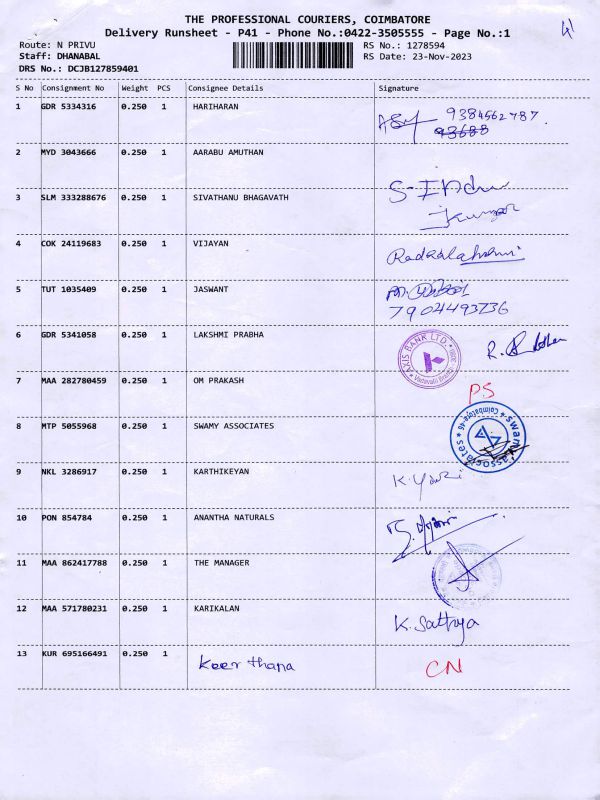 THE PROFESSIONAL COURIERS, COIMBATORE
Delivery Runsheet - P41 - Phone No.:0422-3505555 - Page No.:1
Route: N PRIVU
Staff: DHANABAL
DRS No.: DCJB127859401
RS No.: 1278594
RS Date: 23-Nov-2023
S No Consignment No Weight PCS Consignee Details Signature
1 GDR 5334316 0.250 1 HARIHARAN 9384562787
93688
2 MYD 3043666 0.250 1 AARABU AMUTHAN
S-Indu
kumar
3 SLM 333288676 0.250 1 SIVATHANU BHAGAVATH
4 COK 24119683 0.250 1 VIJAYAN
5 TUT 1035409 0.250 1 JASWANT
7904493736
6 GDR 5341058 0.250 1 LAKSHMI PRABHA AXIS BANK LTD.
7 MAA 282780459 0.250 1 OM PRAKASH PS
8 MTP 5055968 0.250 1 SWAMY ASSOCIATES swamy associates Coimbatore-46
9 NKL 3286917 0.250 1 KARTHIKEYAN
10 PON 854784 0.250 1 ANANTHA NATURALS
11 MAA 862417788 0.250 1 THE MANAGER
12 MAA 571780231 0.250 1 KARIKALAN K. Sathya
13 KUR 695166491 0.250 1 Keerthana CN